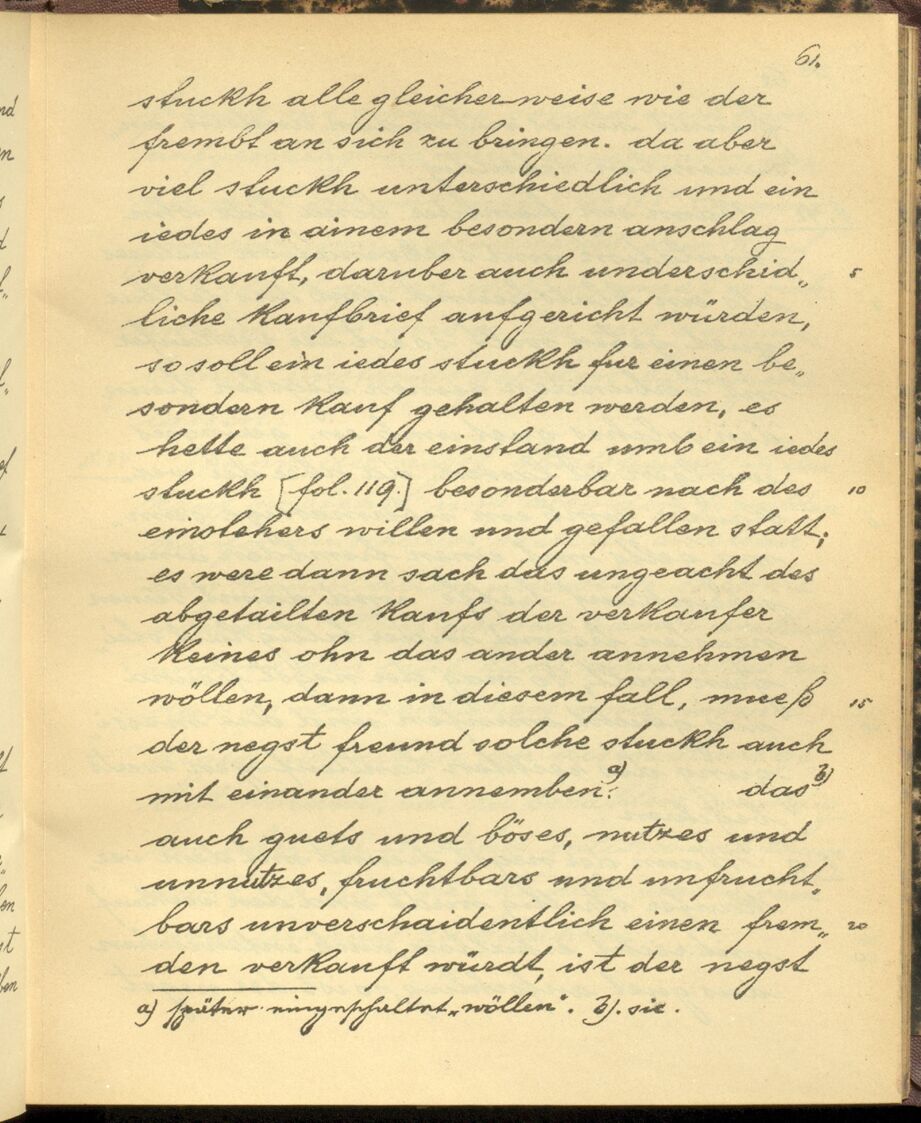 61.
stuckh alle gleicher weise wie der
frembt an sich zu bringen. da aber
viel stuckh unterschiedlich und ein
iedes in ainem besondern anschlag
verkauft, daruber auch underschid„ 5
liche kaufbrief aufgericht würden,
so soll ein iedes stuckh fur einen be„
sondern kauf gehalten werden, es
hette auch der einstand umb ein iedes
stuckh [fol. 119.] besonderbar nach des 10
einstehers willen und gefallen statt;
es were dann sach das ungeacht des
abgetailten kaufs der verkaufer
keines ohn das ander annehmen
wöllen, dann in diesem fall, mueß 15
der negst freund solche stuckh auch
mit einander annemben a). das b)
auch guets und böses, nutzes und
unnutzes, fruchtbars und unfrucht„
bars unverschaidentlich einen frem„ 20
den verkauft würdt, ist der negst
a) später eingeschaltet „wöllen“. b). sic.